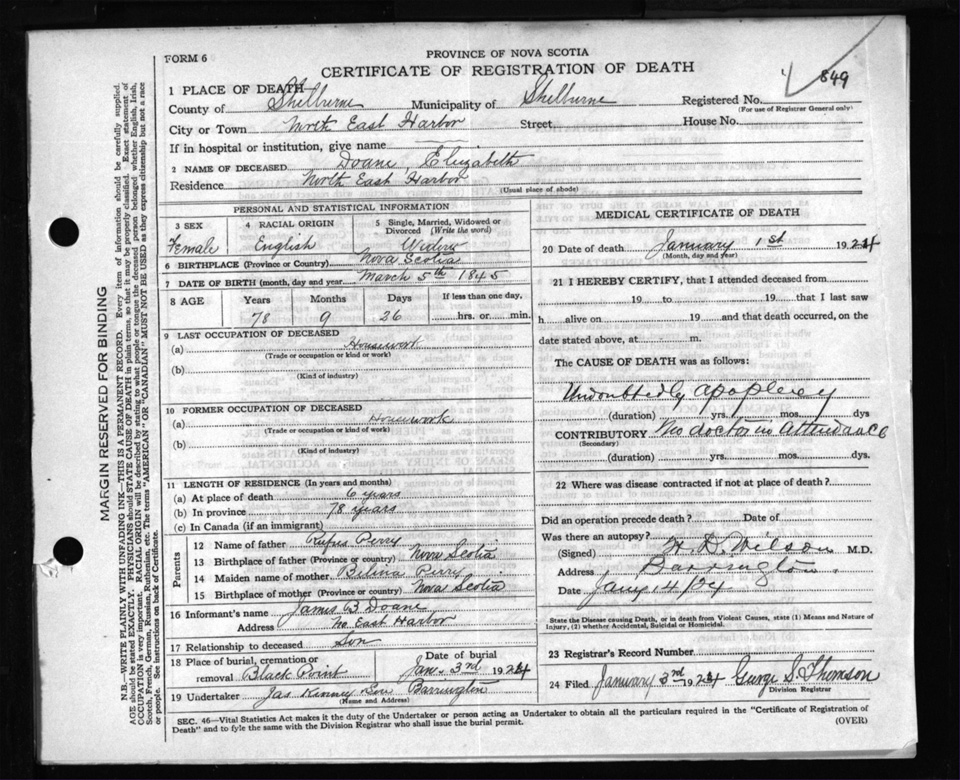 FORM 6
PROVINCE OF NOVA SCOTIA
CERTIFICATE OF REGISTRATION OF DEATH
849
1 PLACE OF DEATH
County of Shelburne Municipality of Shelburne Registered No.
(For use of Registrar General only)
City or Town North East Harbor Street House No.
If in hospital or institution, give name
2 NAME OF DECEASED Doane, Elizabeth
Residence North East Harbor
(Usual place of abode)
PERSONAL AND STATISTICAL INFORMATION
3 SEX 4 RACIAL ORIGIN 5 Single, Married, Widowed or Divorced (Write the word)
Female English Widow
6 BIRTHPLACE (Province or Country) Nova Scotia
7 DATE OF BIRTH (month, day and year) March 5th 1845
8 AGE Years Months Days If less than one day,
78 9 26 hrs. or min.
9 LAST OCCUPATION OF DECEASED
(a) Housework
(Trade or occupation or kind or work)
(b)
(Kind of industry)
10 FORMER OCCUPATION OF DECEASED
(a) Housework
(Trade or occupation or kind or work)
(b)
(Kind of industry)
11 LENGTH OF RESIDENCE (In years and months)
(a) At place of death 6 years
(b) In province 78 years
(c) In Canada (if an immigrant)
Parents
12 Name of father Rufus Perry
13 Birthplace of father (Province or country) Nova Scotia
14 Maiden name of mother Perry
15 Birthplace of mother (Province or Country) Nova Scotia
16 Informant's name James B Doane
Address No East Harbor
17 Relationship to deceased Son
18 Place of burial, cremation or removal Black Point Date of burial Jan. 3rd 1924
19 Undertaker Jas Kinney Son Barrington
(Name and Address)
MEDICAL CERTIFICATE OF DEATH
20 Date of death January 1st 1924
(Month, day and year)
21 I HEREBY CERTIFY, that I attended deceased from
19 to 19 that I last saw
h alive on 19 and that death occurred, on the
date stated above, at m.
The CAUSE OF DEATH was as follows:
Undoubtedly apoplexy
(duration) yrs. mos. dys
CONTRIBUTORY No doctor in attendance
(Secondary)
(duration) yrs. mos. dys.
22 Where was disease contracted if not at place of death?
Did an operation precede death? Date of
Was there an autopsy?
(Signed) H. D. Wilson M.D.
Address Barrington
Date Jany 14/24
State the Disease causing Death, or in death from Violent Causes, state (1) Means and Nature of Injury, (2) whether Accidental, Suicidal or Homicidal.
23 Registrar's Record Number
24 Filed January 3rd 1924 George S. Thomson
Division Registrar
SEC. 46—Vital Statistics Act makes it the duty of the Undertaker or person acting as Undertaker to obtain all the particulars required in the "Certificate of Registration of
Death" and to fyle the same with the Division Registrar who shall issue the burial permit.
(OVER)
MARGIN RESERVED FOR BINDING
N.B.—WRITE PLAINLY WITH UNFADING INK—THIS IS A PERMANENT RECORD. Every item of information should be carefully supplied.
AGE should be stated EXACTLY. PHYSICIANS should STATE CAUSE OF DEATH in plain terms, so that it may be properly classified. Exact statement of
OCCUPATION is very important. RACIAL ORIGIN will be described by stating to what people or tongue the deceased person belonged whether English, Irish,
Scotch, French, German, Russian, Ruthenian, etc. The terms "AMERICAN" OR "CANADIAN" MUST NOT BE USED as they express citizenship but not a race
or people. See instructions on back of Certificate.